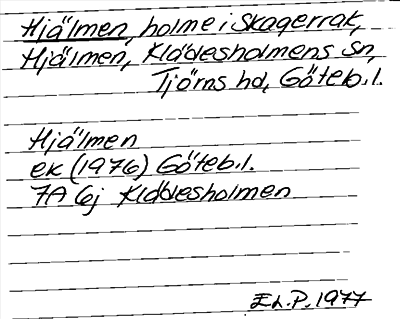 Hjälmen, holme i Skagerrak,
Hjälmen, Klädesholmens sn,
Tjörns hd, Göteb.l.
Hjälmen
ek (1976) Göteb.l.
7A 6j Klädesholmen
E.L.P. 1977